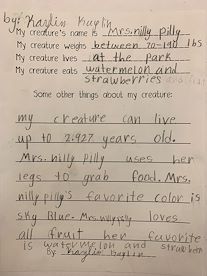 by: Kaylin Kaplin
My creature's name is Mrs. nilly pilly
My creature weighs between 70-190 lbs
My creature lives at the park
My creature eats watermelon and
strawberries
Some other things about my creature:
my creature can live
up to 2,927 years old.
Mrs. nilly pilly uses her
legs to grab food. Mrs.
nilly pilly's favorite color is
sky Blue. Mrs. nilly pilly loves
all fruit her favorite
is watermelon and
By: Kaylin Kaplin